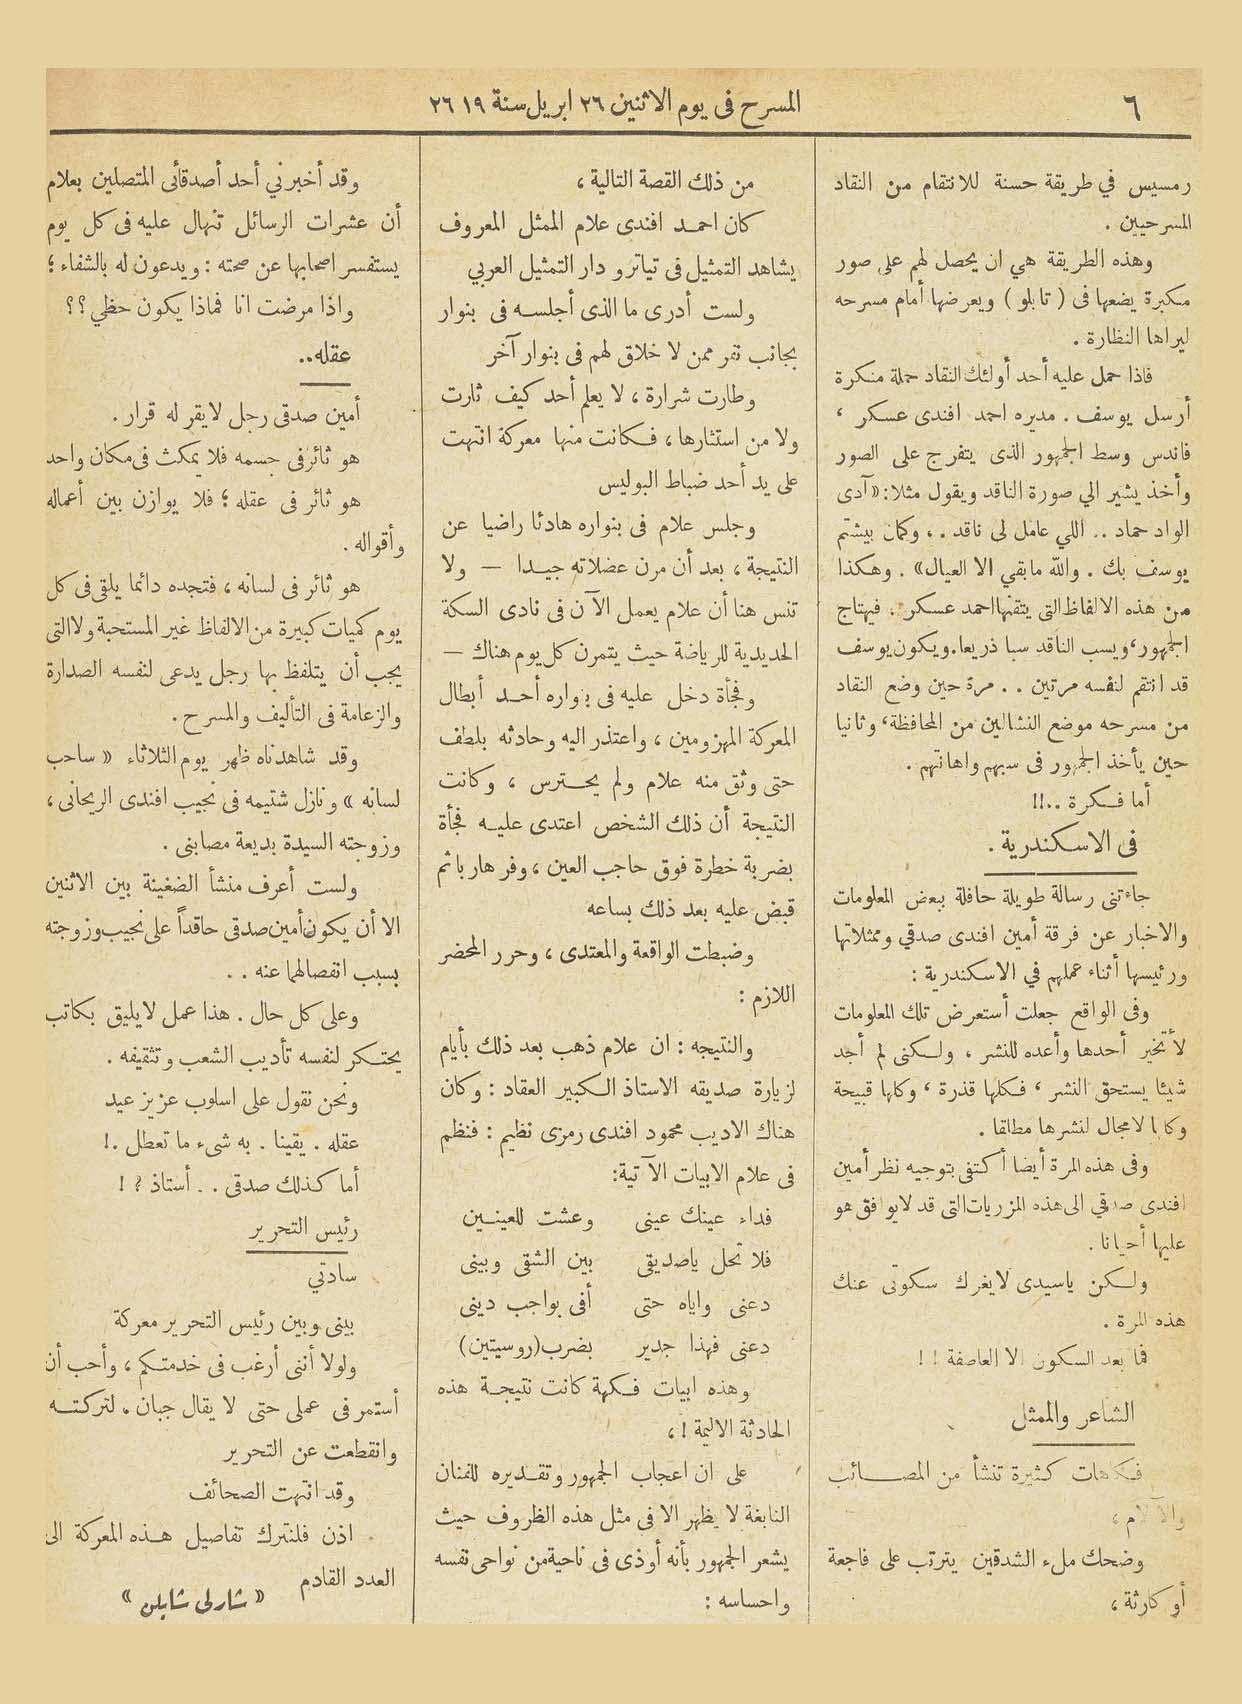 ٦
المسرح فى يوم الاثنين ٢٦ ابريل سنة ١٩٢٦
رمسيس في طريقة حسنة للانتقام من النقاد
المسرحيين .
وهذه الطريقة هي ان يحصل لهم على صور
مكبرة يضعها فى ( تابلو ) ويعرضها أمام مسرحه
ليراها النظارة .
فاذا حمل عليه أحد أولئك النقاد حملة منكرة
أرسل يوسف . مديره احمد افندى عسكر ،
فاندس وسط الجمهور الذى يتفرج على الصور
وأخذ يشير الي صورة الناقد ويقول مثلا: «آدى
الواد حماد .. اللي عامل لى ناقد .، وكمان بيشتم
يوسف بك . والله مابقي الا العيال» . وهكذا
من هذه الالفاظ التى يتقنها احمد عسكر . فيهتاج
الجمهور، ويسب الناقد سبا ذريعا. ويكون يوسف
قد انتقم لنفسه مرتين . . مرة حين وضع النقاد
من مسرحه موضع النشالين من المحافظة، وثانيا
حين يأخذ الجمهور فى سبهم واهانتهم .
أما فكرة ..!!
فى الاسكندرية .
جاءتنى رسالة طويلة حافلة ببعض المعلومات
والاخبار عن فرقة أمين افندى صدقي وممثلاتها
ورئيسها أثناء عملهم في الاسكندرية :
وفى الواقع جعلت أستعرض تلك المعلومات
لأتخير أحدها وأعده للنشر ، ولكنى لم أجد
شيئا يستحق النشر ، فكلها قذرة ، وكلها قبيحة
وكلها لامجال لنشرها مطلقا .
وفى هذه المرة أيضا أكتفى بتوجيه نظر أمين
افندى صدقي الى هذه المزريات التى قد لايوافق هو
عليها أحيانا .
ولكن ياسيدى لايغرك سكوتى عنك
هذه المرة .
فما بعد السكون الا العاصفة ! !
الشاعر والممثل
فكاهات كثيرة تنشأ من المصائب
والآلام ،
وضحك ملء الشدقين يترتب على فاجعة
أو كارثة ،
من ذلك القصة التالية ،
كان احمد افندى علام الممثل المعروف
يشاهد التمثيل فى تياترو دار التمثيل العربي
ولست أدرى ما الذى أجلسه فى بنوار
بجانب نفر ممن لا خلاق لهم فى بنوار آخر
وطارت شرارة ، لا يعلم أحد كيف ثارت
ولا من استثارها ، فكانت منها معركة انتهت
على يد أحد ضباط البوليس
وجلس علام فى بنواره هادئا راضيا عن
النتيجة ، بعد أن مرن عضلاته جيدا — ولا
تنس هنا أن علام يعمل الآن فى نادى السكة
الحديدية للرياضة حيث يتمرن كل يوم هناك —
وفجأة دخل عليه فى بنواره أحد أبطال
المعركة المهزومين ، واعتذر اليه وحادثه بلطف
حتى وثق منه علام ولم يحترس ، وكانت
النتيجة أن ذلك الشخص اعتدى عليه فجأة
بضربة خطرة فوق حاجب العين ، وفر هاربا ثم
قبض عليه بعد ذلك بساعه
وضبطت الواقعة والمعتدى ، وحرر المحضر
اللازم :
والنتيجه : ان علام ذهب بعد ذلك بأيام
لزيارة صديقه الاستاذ الكبير العقاد : وكان
هناك الاديب محمود افندى رمزى نظيم : فنظم
فى علام الابيات الآتية:
فداء عينك عينى وعشت للعينين
فلا تحل ياصديقى بين الشقى وبينى
دعنى واياه حتى أفى بواجب دينى
دعنى فهذا جدير بضرب(روسيتين)
وهذه ابيات فكهة كانت نتيجة هذه
الحادثة الاليمة ! ،
على ان اعجاب الجمهور وتقديره للفنان
النابغة لا يظهر الا فى مثل هذه الظروف حيث
يشعر الجمهور بأنه أوذى فى ناحية من نواحى نفسه
واحساسه :
وقد أخبرني أحد أصدقائى المتصلين بعلام
أن عشرات الرسائل تنهال عليه فى كل يوم
يستفسر اصحابها عن صحته : ويدعون له بالشفاء ؛
واذا مرضت انا فماذا يكون حظي ؟؟
عقله..
أمين صدقى رجل لايقر له قرار .
هو ثائر فى جسمه فلا يمكث فى مكان واحد
هو ثائر فى عقله ؛ فلا يوازن بين أعماله
وأقواله .
هو ثائر فى لسانه ، فتجده دائما يلقى فى كل
يوم كميات كبيرة من الالفاظ غير المستحبة ولا التى
يجب أن يتلفظ بها رجل يدعى لنفسه الصدارة
والزعامة فى التأليف والمسرح .
وقد شاهدناه ظهر يوم الثلاثاء « ساحب
لسانه » ونازل شتيمه فى نجيب افندى الريحانى ،
وزوجته السيدة بديعة مصابنى .
ولست أعرف منشأ الضغينة بين الاثنين
الا أن يكون أمين صدقى حاقداً على نجيب وزوجته
بسبب انفصالهما عنه . .
وعلى كل حال . هذا عمل لايليق بكاتب
يحتكر لنفسه تأديب الشعب وتثقيفه .
ونحن نقول على اسلوب عزيز عيد
عقله . يقينا . به شىء ما تعطل .!
أما كذلك صدقى . . أستاذ ؟ !
رئيس التحرير
سادتي
بينى وبين رئيس التحرير معركة
ولولا أننى أرغب فى خدمتكم ، وأحب أن
أستمر فى عملى حتى لا يقال جبان ، لتركته
وانقطعت عن التحرير
وقد انتهت الصحائف
اذن فلنترك تفاصيل هذه المعركة الى
العدد القادم
« شارلى شابلن »